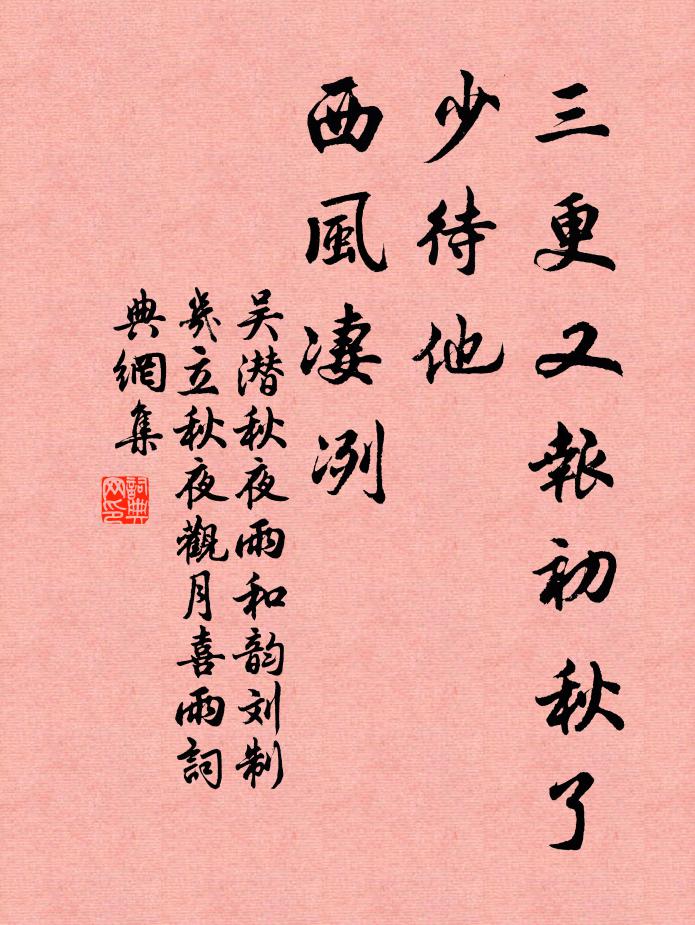 三更又報初秋了
少待他
西風凄冽
吴潜秋夜雨和韵刘制
幾立秋夜觀月喜雨詞
典網集
詞典網印